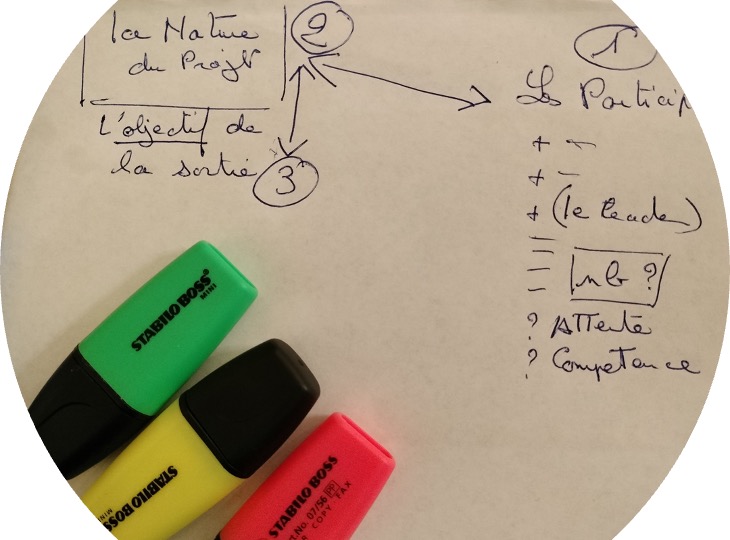 La Nature
du Projet
2
L'objectif de
la sortie
3
1
Les Particip
+ -
+ -
+ (le leader)
nb ?
? Attente
? Competence
STABILO BOSS
MINI
STABILO BOSS
MINI
STABILO BOSS
No. 07/56
COPY FAX